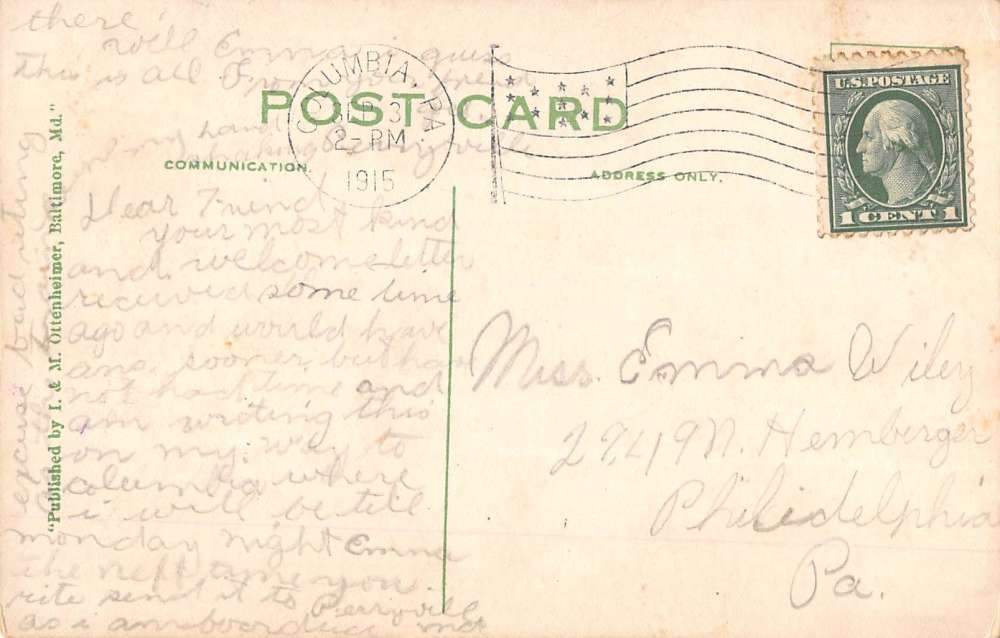 there
well Emma i guess
this is all
POST CARD
COLUMBIA, PA.
SEP 3
2-PM
1915
U.S. POSTAGE
1 CENT 1
my hand
Perryville
COMMUNICATION.
ADDRESS ONLY.
"Published by I. & M. Ottenheimer, Baltimore, Md."
excuse bad writing
Dear Friend
your most kind
and welcome letter
received some time
ago and would have
ans. sooner but have
not had time and
am writing this
on my way to
columbia where
i will be till
monday night Emma
the next time you
rite send it to Perryville
as i am md
Miss. Emma Wiley
2949 N. Hemberger
Philidelphia
Pa.